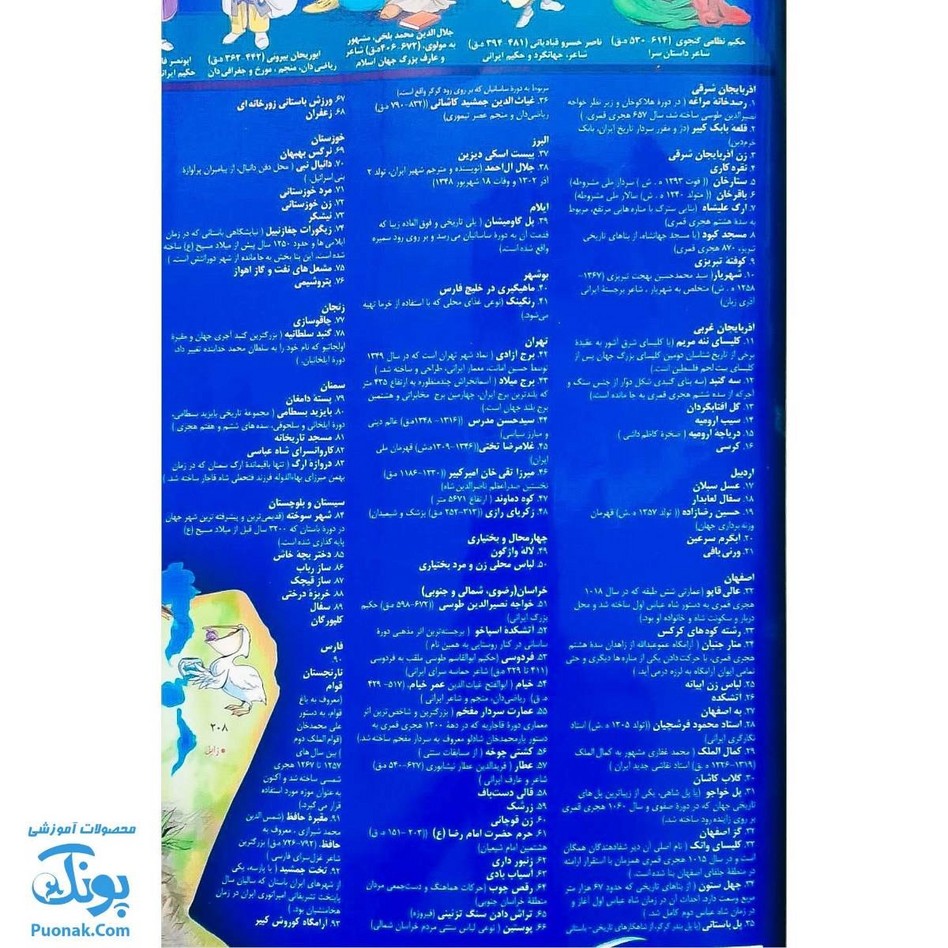 حکیم نظامی گنجوی (۶۱۴- ۵۳۰ ه.ق)
شاعر داستان سرا
ناصر خسرو قبادیانی (۴۸۱- ۳۹۴ ه.ق)
شاعر، جهانگرد و حکیم ایرانی
جلال الدین محمد بلخی، مشهور
به مولوی، (۶۷۲-۶۰۴ه.ق) شاعر
و عارف بزرگ جهان اسلام
ابوریحان بیرونی (۴۴۲- ۳۶۲ ه.ق)
ریاضی‌دان، منجم ، مورخ و جغرافی‌دان
ابونصر فا
حکیم ایرا
آذربایجان شرقی
۱. رصدخانه مراغه ( در دورهٔ هلاکوخان و زیر نظر خواجه
نصیرالدین طوسی ساخته شد. سال ۶۵۷ هجری قمری. )
۲. قلعه بابک کبیر (دژ و مقرر سردار تاریخ ایران، بابک
خرم‌دین)
۳. زن آذربایجان شرقی
۴. نقره کاری
۵. ستارخان (( فوت ۱۲۹۳ ه . ش ) سردار ملی مشروطه)
۶. باقرخان (( متولد ۱۲۴۰ ه . ش) سالار ملی مشروطه)
۷. ارگ علیشاه (بنایی سترگ با مناره هایی مرتفع، مربوط
به سدهٔ هشتم هجری قمری)
۸. مسجد کبود (یا مسجد جهانشاه، از بناهای تاریخی
تبریز، ۸۷۰ هجری قمری)
۹. کوفته تبریزی
۱۰. شهریار( سید محمدحسین بهجت تبریزی (۱۳۶۷-
۱۲۵۸ ه . ش) متخلص به شهریار ، شاعر برجستهٔ ایرانی
آذری زبان)
آذربایجان غربی
۱۱. کلیسای ننه مریم (یا کلیسای شرق آشور به عقیدهٔ
برخی از تاریخ شناسان دومین کلیسای بزرگ جهان پس از
کلیسای بیت لحم فلسطین است.)
۱۲. سه گنبد (سه بنای گنبدی شکل دوّار از جنس سنگ و
آجر که از سده ششم هجری قمری به جا مانده است.)
۱۳. گل آفتابگردان
۱۴. سیب ارومیه
۱۵. دریاچه ارومیه ( صخرهٔ کاظم داشی )
۱۶. کرسی
اردبیل
۱۷. عسل سبلان
۱۸. سفال لعابدار
۱۹. حسین رضازاده (( تولد ۱۳۵۷ ه.ش) قهرمان
وزنه برداری جهان)
۲۰. آبگرم سرعین
۲۱. ورنی بافی
اصفهان
۲۲. عالی قاپو (عمارتی شش طبقه که در سال ۱۰۱۸
هجری قمری به دستور شاه عباس اول ساخته شد و محل
دربار و سکونت شاه و خانواده او بود.)
۲۳. رشته کوه‌های کرکس
۲۴. منار جنبان ( آرامگاه عموعبدالله از زاهدان سدهٔ هشتم
هجری قمری، با حرکت دادن یکی از مناره ها دیگری و حتی
تمامی ایوان آرامگاه به لرزه درمی آید.)
۲۵. لباس زن ابیانه
۲۶. آتشکده
۲۷. به اصفهان
۲۸. استاد محمود فرشچیان ((تولد ۱۳۰۵ ه .ش) استاد
نگارگری ایرانی)
۲۹. کمال الملک ( محمد غفاری مشهور به کمال الملک
(۱۳۱۹-۱۲۲۶ ه .ق) استاد نقاشی جدید ایران )
۳۰. گلاب کاشان
۳۱. پل خواجو (یا پل شاهی، یکی از زیباترین پل های
تاریخی جهان که در دوره صفوی و سال ۱۰۶۰ هجری قمری
بر روی زاینده رود ساخته شد.)
۳۲. گز اصفهان
۳۳. کلیسای وانک ( نام اصلی آن دیر شفادهندگان همگان
است و در سال ۱۰۱۵ هجری قمری همزمان با استقرار ارامنه
در منطقه جلفای اصفهان بنا شده است.)
۳۴. چهل ستون ( از بناهای تاریخی که حدود ۶۷ هزار متر
مربع وسعت دارد. احداث آن در زمان شاه عباس اول آغاز و
در زمان شاه عباس دوم کامل شد. )
۳۵. پل باستانی (یا پل بندر کرکر، از شاهکارهای تاریخی - باستانی
مربوط به دورهٔ ساسانیان که بر روی رود گرگر واقع است.)
۳۶. غیاث الدین جمشید کاشانی ((۸۳۲-۷۹۰ ه.ق)
ریاضی‌دان و منجم عصر تیموری)
البرز
۳۷. پیست اسکی دیزین
۳۸. جلال آل‌احمد (نویسنده و مترجم شهیر ایران، تولد ۲
آذر ۱۳۰۲ و وفات ۱۸ شهریور ۱۳۴۸)
ایلام
۳۹. پل گاومیشان ( پلی تاریخی و فوق العاده زیبا که
قدمت آن به دورهٔ ساسانیان می رسد و بر روی رود سمیره
واقع شده است.)
بوشهر
۴۰. ماهیگیری در خلیج فارس
۴۱. رنگینک (نوعی غذای محلی که با استفاده از خرما تهیه
می‌شود.)
تهران
۴۲. برج آزادی ( نماد شهر تهران است که در سال ۱۳۴۹
توسط حسین امانت، معمار ایرانی، طراحی و ساخته شد. )
۴۳. برج میلاد ( آسمانخراش چندمنظوره به ارتفاع ۴۳۵ متر
که بلندترین برج ایران، چهارمین برج مخابراتی و هشتمین
برج بلند جهان است.)
۴۴. سیدحسن مدرس ((۱۳۱۶- ۱۲۴۸ه.ق) عالم دینی
و مبارز سیاسی)
۴۵. غلامرضا تختی((۱۳۴۶-۱۳۰۹ه.ش) قهرمان ملی
ایران)
۴۶. میرزا تقی خان امیرکبیر ((۱۲۳۰-۱۱۸۶ ه.ق)
نخستین صدراعظم ناصرالدین شاه)
۴۷. کوه دماوند ( ارتفاع ۵۶۷۱ متر )
۴۸. زکریای رازی ((۳۱۳-۲۵۲ ه.ق) پزشک و شیمیدان)
چهارمحال و بختیاری
۴۹. لاله واژگون
۵۰. لباس محلی زن و مرد بختیاری
خراسان(رضوی، شمالی و جنوبی)
۵۱. خواجه نصیرالدین طوسی ((۶۷۲-۵۹۸ ه.ق) حکیم
بزرگ ایرانی)
۵۲. آتشکده اسپاخو ( برجسته‌ترین اثر مذهبی دورهٔ
ساسانی در کنار روستایی به همین نام )
۵۳. فردوسی (حکیم ابوالقاسم طوسی ملقب به فردوسی
(۴۱۱ تا ۳۲۹ ه.ق) شاعر حماسه سرای ایرانی)
۵۴. خیام ( ابوالفتح غیاث الدین عمر خیام. (۵۱۷- ۴۲۹
ه . ق) ریاضی‌دان، منجم و شاعر ایرانی )
۵۵. عمارت سردار مفخم ( بزرگترین و شاخص‌ترین اثر
معماری دورهٔ قاجاریه که در دههٔ ۱۳۰۰ هجری قمری به
دستور یارمحمدخان شادلو معروف به سردار مفخم ساخته شد.)
۵۶. کشتی چوخه ( از مسابقات سنتی )
۵۷. عطار ( فریدالدین عطار نیشابوری (۶۲۷-۵۴۰ ه.ق)
شاعر و عارف ایرانی )
۵۸. قالی دست‌باف
۵۹. زرشک
۶۰. زن قوچانی
۶۱. حرم حضرت امام رضا (ع) ((۲۰۳ -۱۵۱ ه.ق)
هشتمین امام شیعیان)
۶۲. زنبور داری
۶۳. آسیاب بادی
۶۴. رقص چوب ( حرکات هماهنگ و دست‌جمعی مردان
منطقهٔ خراسان جنوبی)
۶۵. تراش دادن سنگ تزئینی (فیروزه)
۶۶. پوستین ( نوعی لباس سنتی مردم خراسان شمالی)
۶۷. ورزش باستانی زورخانه‌ای
۶۸. زعفران
خوزستان
۶۹. نرگس بهبهان
۷۰. دانیال نبی ( محل دفن دانیال، از پیامبران پرآوازهٔ
بنی اسرائیل. )
۷۱. مرد خوزستانی
۷۲. زن خوزستانی
۷۳. نیشکر
۷۴. زیگورات چغازنبیل ( نیایشگاهی باستانی که در زمان
ایلامی ها و حدود ۱۲۵۰ سال پیش از میلاد مسیح (ع) ساخته
شده است. این بنا بخش به جا مانده از شهر دوراونتاش است. )
۷۵. مشعل‌های نفت و گاز اهواز
۷۶. پتروشیمی
زنجان
۷۷. چاقوسازی
۷۸. گنبد سلطانیه ( بزرگترین گنبد آجری جهان و مقبرهٔ
اولجایتو که نام خود را به سلطان محمد خدابنده تغییر داد،
دورهٔ ایلخانیان. )
سمنان
۷۹. پسته دامغان
۸۰. بایزید بسطامی ( مجموعهٔ تاریخی بایزید بسطامی،
دورهٔ ایلخانی و سلجوقی، سده های ششم و هفتم هجری )
۸۱. مسجد تاریخانه
۸۲. کاروانسرای شاه عباسی
۸۳. دروازهٔ ارگ ( تنها باقیماندهٔ ارگ سمنان که در زمان
بهمن میرزای بهاءالدوله فرزند فتحعلی شاه قاجار ساخته شد. )
سیستان و بلوچستان
۸۴. شهر سوخته (قدیمی‌ترین و پیشرفته ترین شهر جهان
در دورهٔ باستان که ۳۲۰۰ سال قبل از میلاد مسیح (ع)
پایه گذاری شده است.)
۸۵. دختر بچهٔ خاش
۸۶. ساز رباب
۸۷. ساز قیچک
۸۸. خربزه درختی
۸۹. سفال
کلپورگان
فارس
۹۰.
نارنجستان
قوام
(معروف به باغ
قوام، به دستور
علی محمدخان
(قوام الملک دوم
) بین سال های
۱۲۵۷ تا ۱۲۶۷ هجری
شمسی ساخته شد و اکنون
به عنوان موزه مورد استفاده
قرار می گیرد.)
۹۱. مقبرهٔ حافظ (شمس‌الدین
محمد شیرازی، معروف به
حافظ (۷۹۲-۷۲۶ ه.ق) بزرگترین
شاعر غزل‌سرای فارسی )
۹۲. تخت جمشید ( یا پارسه، یکی
از شهرهای ایران باستان که سالیان سال
پایتخت تشریفاتی امپراتوری ایران در زمان
هخامنشیان بود. )
۹۳. آرامگاه کوروش کبیر
۳۰۸
زابل
محصولات آموزشی
پونک
Puonak.Com